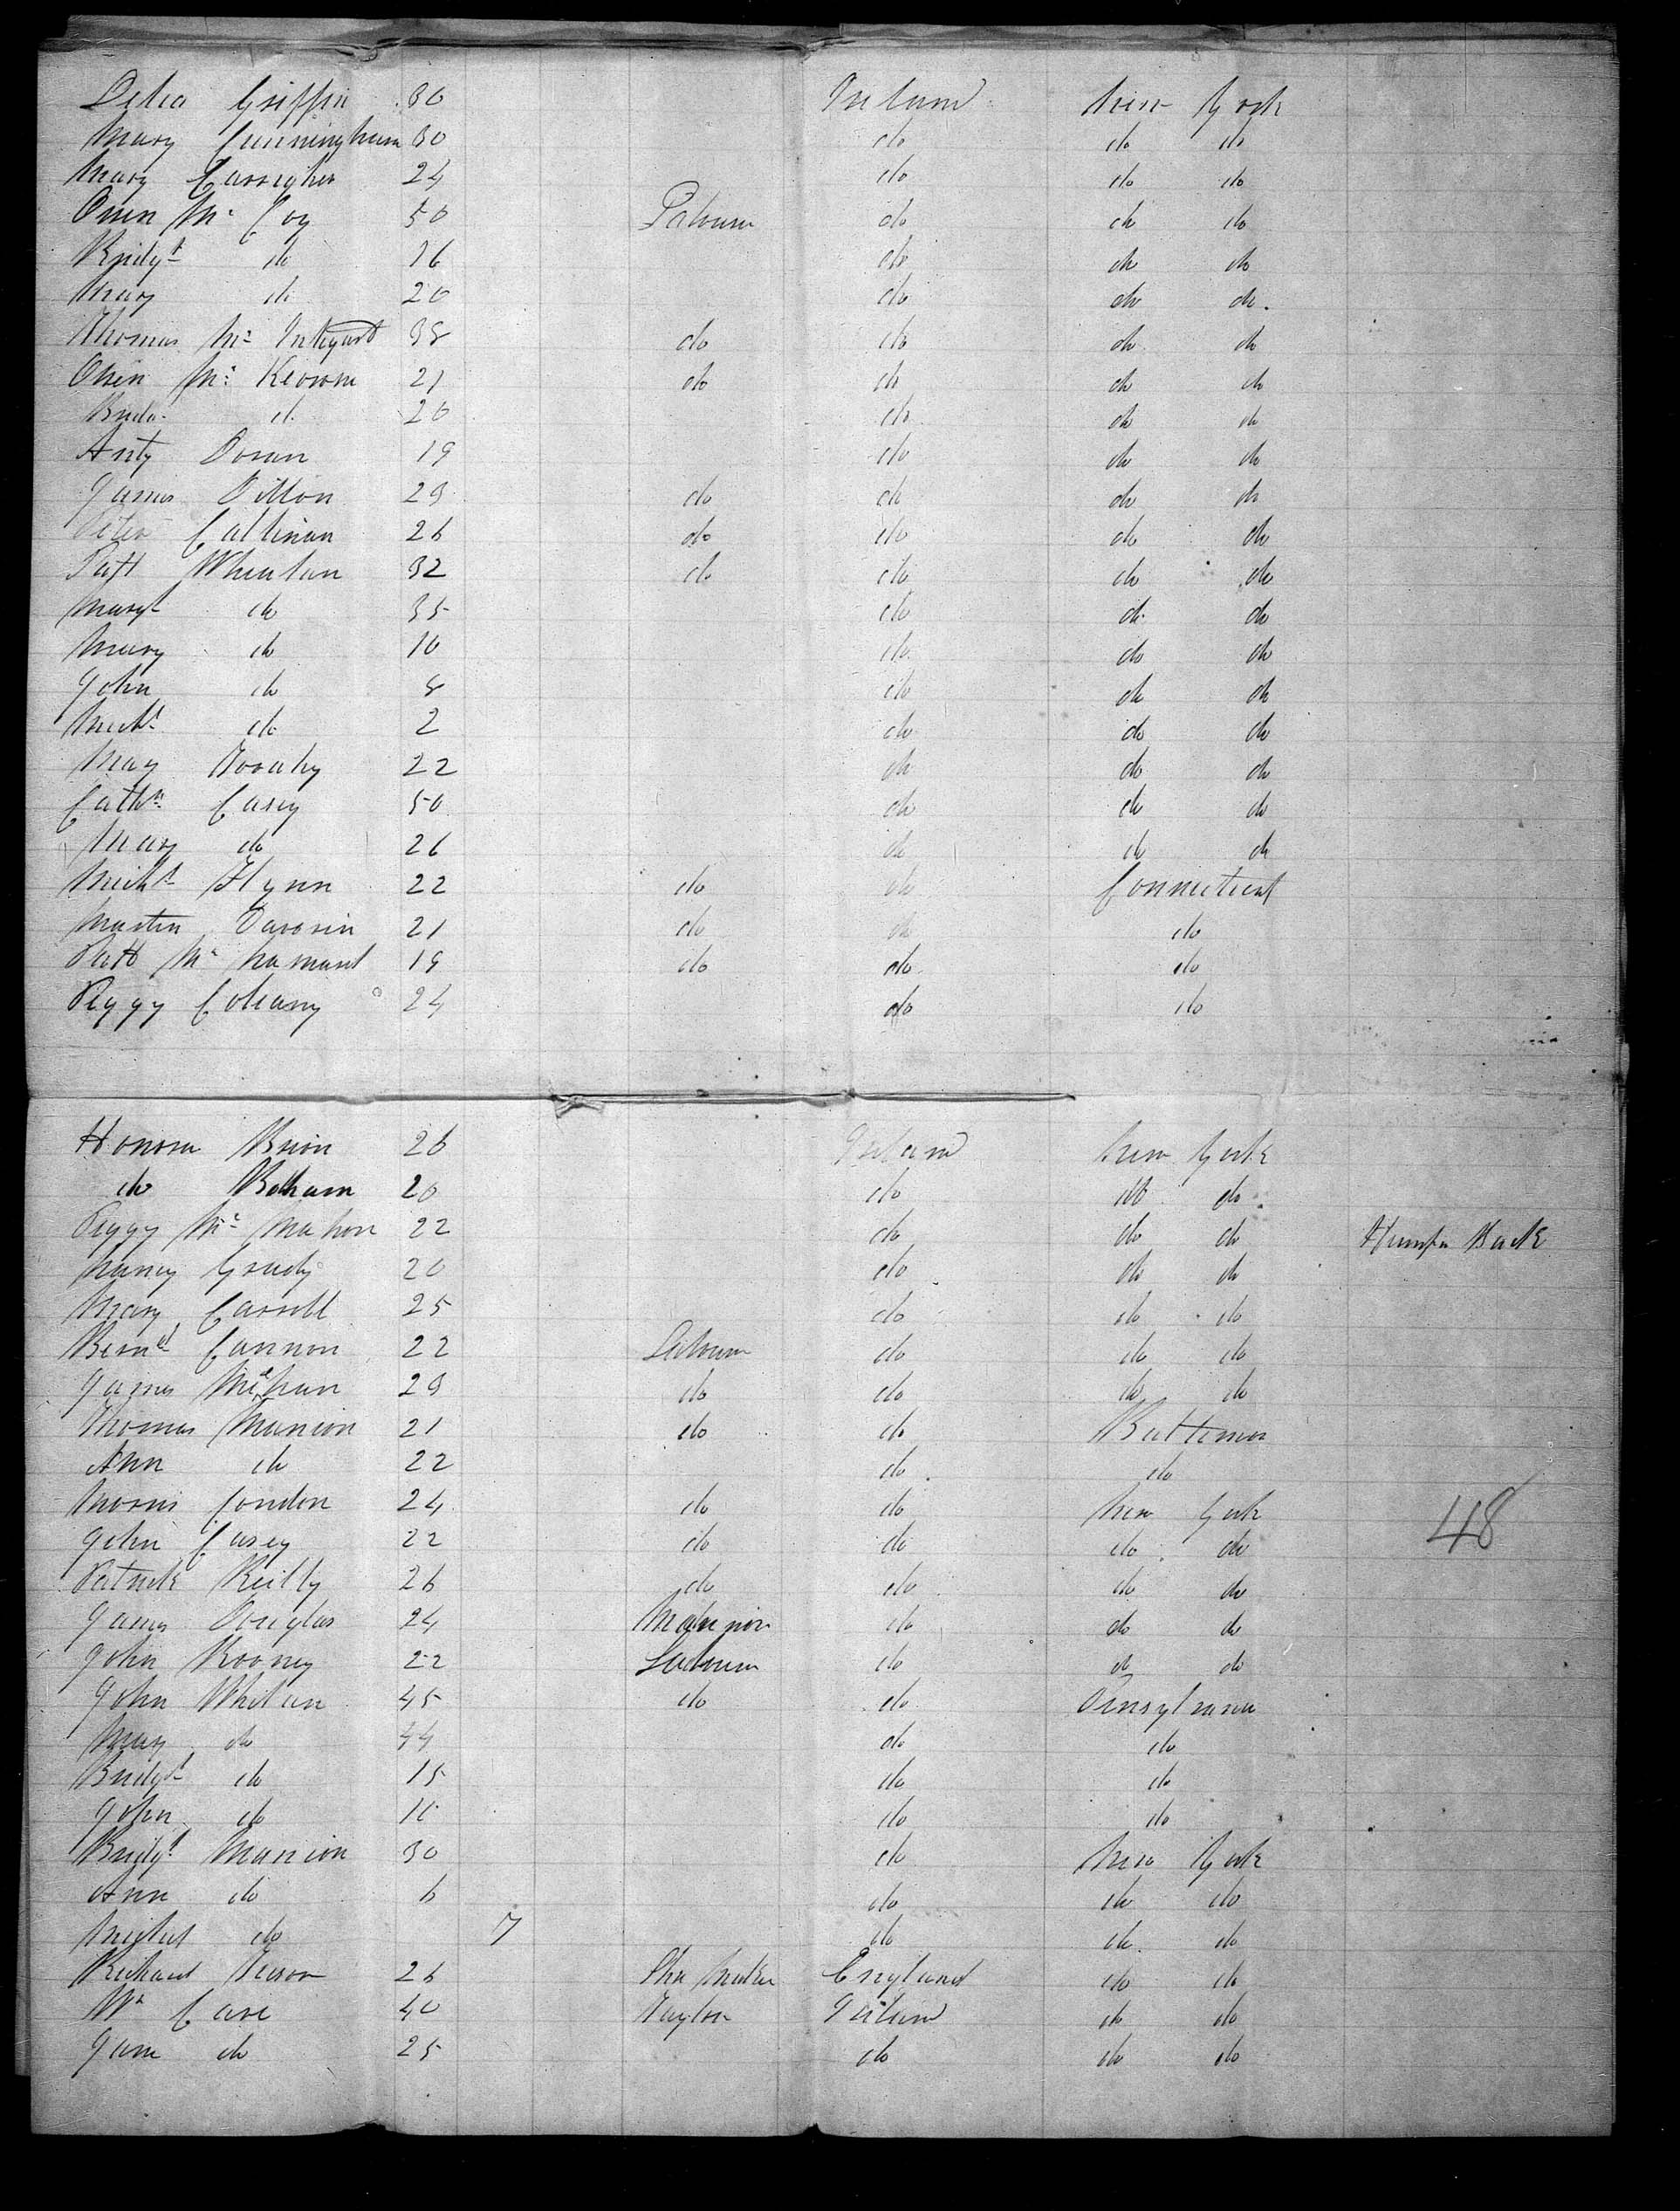 Delia Griffin 30 Ireland New York
Mary Cunningham 30 do do do
Mary Carragher 24 do do do
Owen Mc Coy 50 Labourer do do do
Bridgt do 16 do do do
Mary do 20 do do do.
Thomas Mc Integart 38 do do do do
Owen Mc Keown 21 do do do do
do 20 do do do
Anty Doran 19 do do do
James Dillon 29 do do do do
Peter Callinan 26 do do do do
Patt Whealan 32 do do do do
Margt do 35 do do do
Mary do 10 do do do
John do 8 do do do
Michl do 2 do do do
Mary 22 do do do
Cathn Casey 50 do do do
Mary do 26 do do do
Michl Flynn 22 do do Connecticut
Martin 21 do do do
Patt Mc Namara 19 do do do
Peggy 24 do do
Honora Brion 26 Ireland New York
do 20 do do do.
Peggy Mc Mahon 22 do do do Hump Back
Nancy Grady 20 do do do
Mary Carroll 25 do do do
Bernd Cannon 22 Labourer do do do
James Mehan 29 do do do do
Thomas Manion 21 do do Baltimore
Ann do 22 do do
Morris Condon 24 do do New York
John Casey 22 do do do do
Patrick Reilly 26 do do do do
48
James Douglas 24 do do do
John Rooney 22 Labourer do do do
John Whelan 45 do do Pensylvania
Mary do 44 do do
Bridgt do 15 do do
John do 10 do do
Bridgt Manion 30 do New York
Ann do 6 do do do
Michel do 7 do do do
Richard 26 Shoe Maker England do do
Wm Care 40 Taylor Ireland do do
Jane do 25 do do do